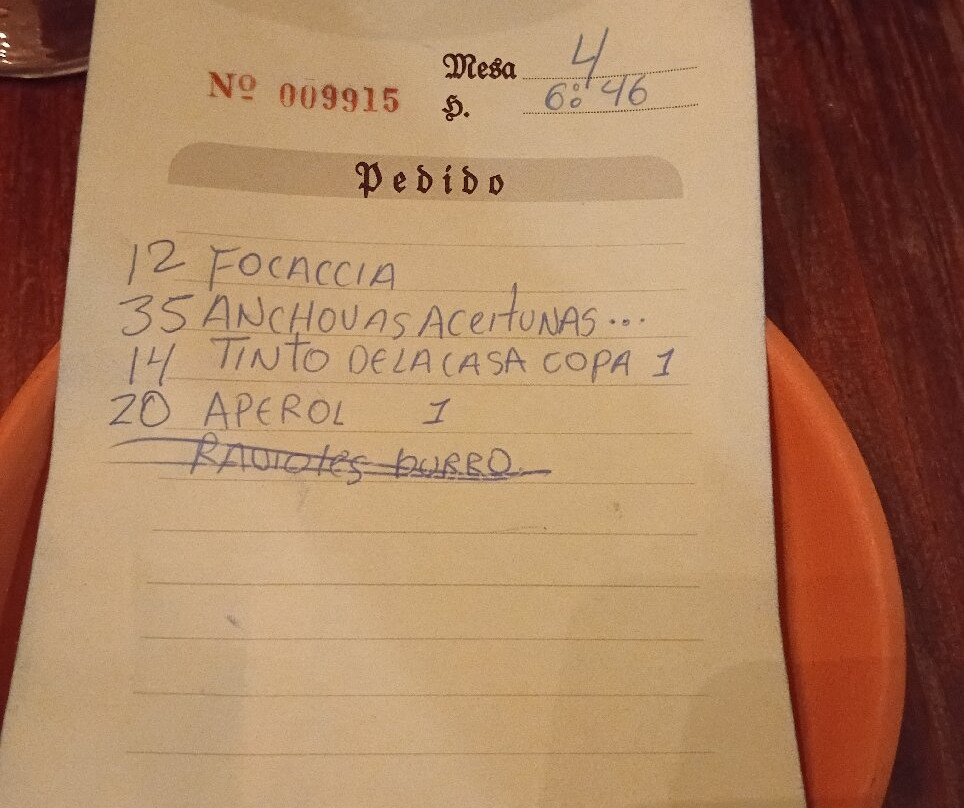 Mesa 4
Nº 009915
H. 6:46
Pedido
12 FOCACCIA
35 ANCHOVAS ACEITUNAS...
14 TINTO DE LA CASA COPA 1
20 APEROL 1
RAVIOLES BURRO